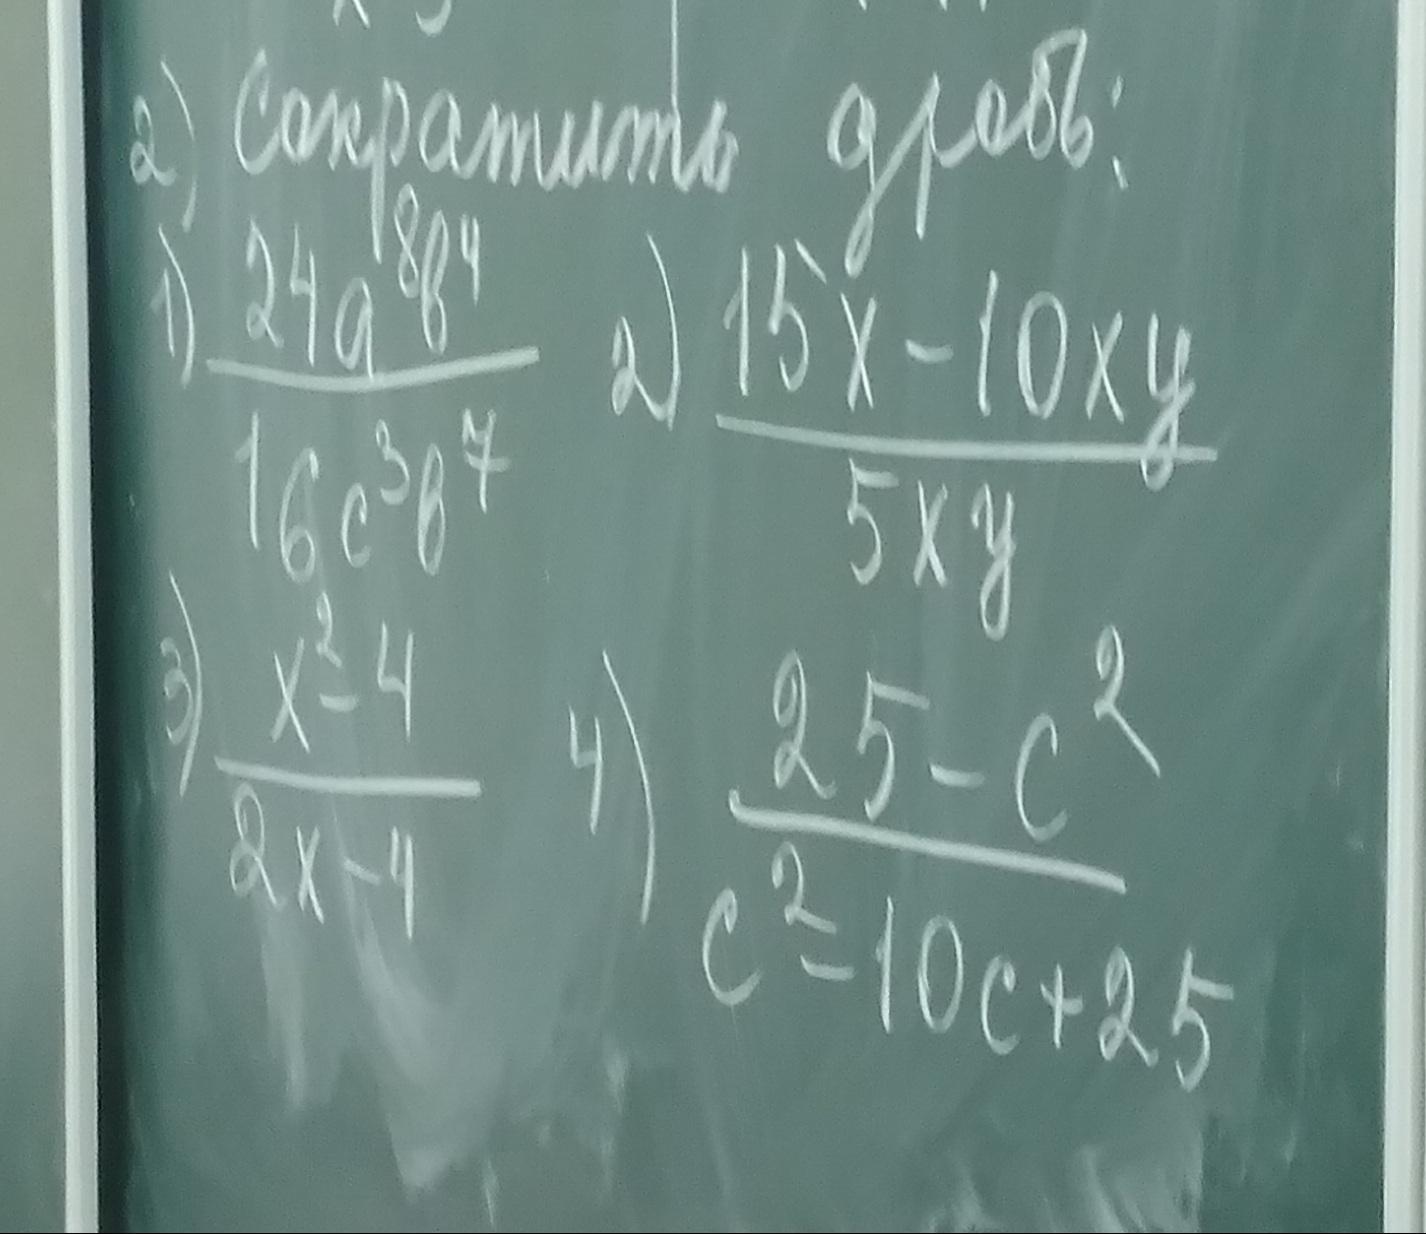 2) Сократить дробь:
1) 24a⁸b⁴ / 16c³b⁷ 2) 15x - 10xy / 5xy
3) x² - 4 / 2x - 4 4) 25 - c² / c² - 10c + 25